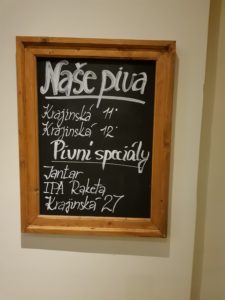 Naše piva
Krajinská 11°
Krajinská 12°
Pivní speciály
Jantar
IPA Raketa
Krajinská 27